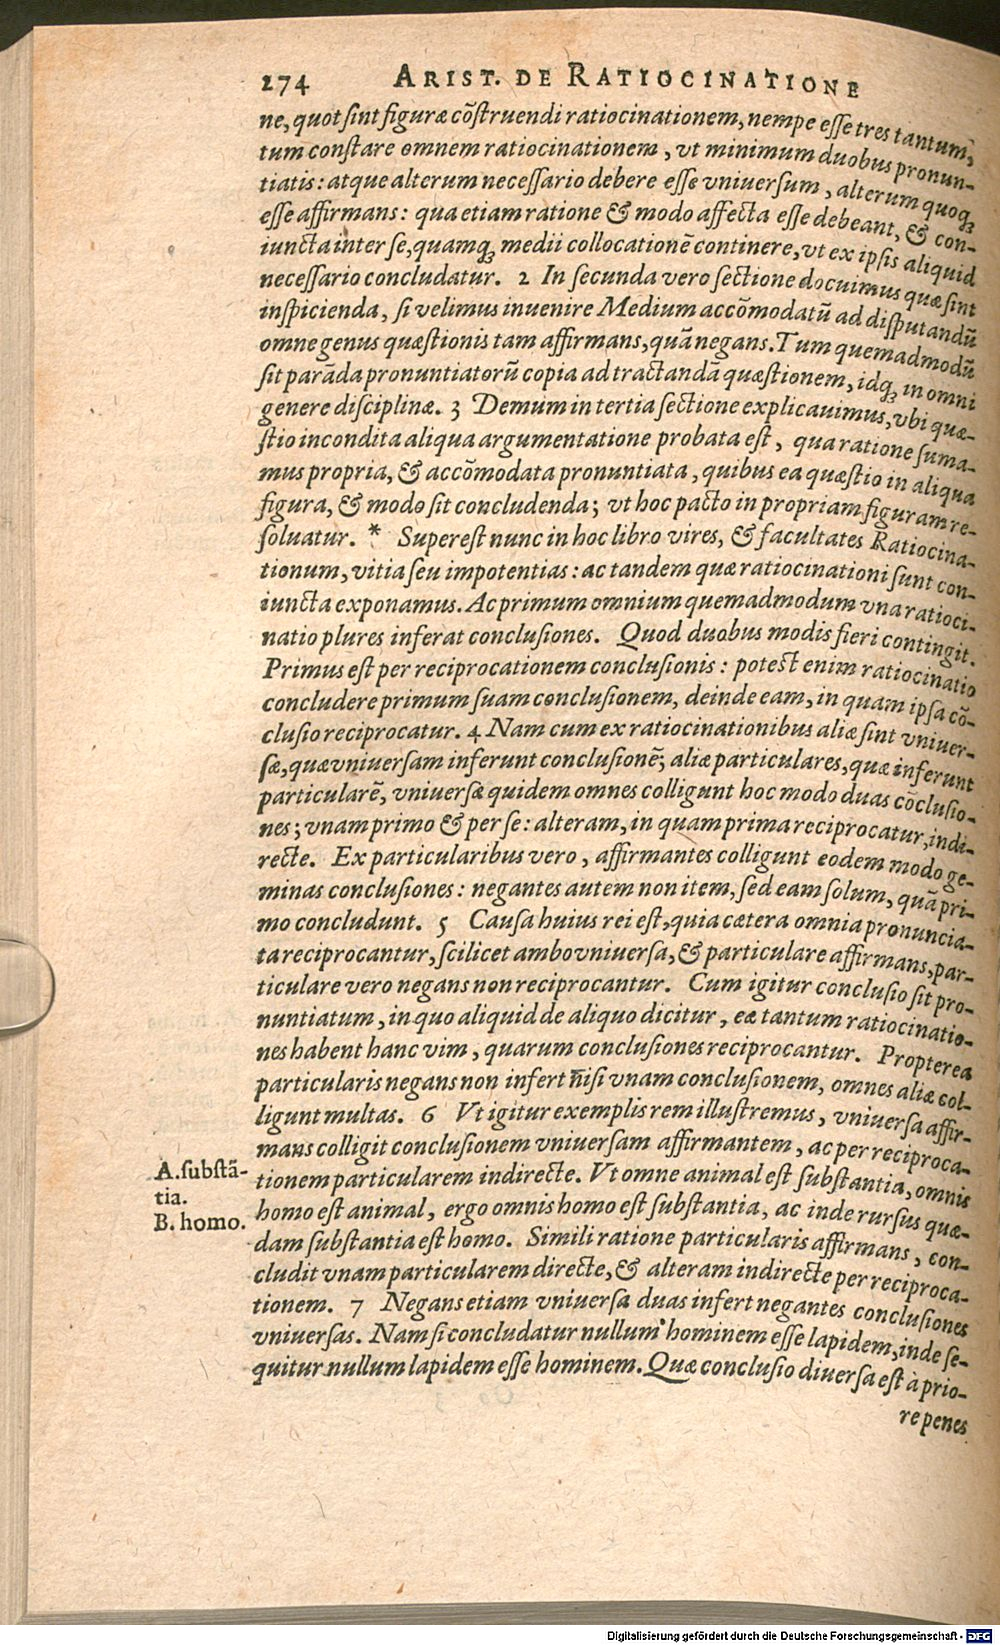 274 ARIST. DE RATIOCINATIONE
ne, quot sint figuræ cõstruendi ratiocinationem, nempe esse tres tantum,
tum constare omnem ratiocinationem, vt minimum duobus pronun-
tiatis: atque alterum necessario debere esse vniuersum, alterum quoqꝫ
esse affirmans: qua etiam ratione & modo affecta esse debeant, & con-
iuncta inter se, quamqꝫ medii collocationẽ continere, vt ex ipsis aliquid
necessario concludatur. 2 In secunda vero sectione docuimus quæ sint
inspicienda, si velimus inuenire Medium accõmodatũ ad disputandũ
omne genus quæstionis tam affirmans, quã negans. Tum quemadmodũ
sit parãda pronuntiatorũ copia ad tractandã quæstionem, idqꝫ in omni
genere disciplinæ. 3 Demum in tertia sectione explicauimus, vbi quæ-
stio incondita aliqua argumentatione probata est, qua ratione suma-
mus propria, & accõmodata pronuntiata, quibus ea quæstio in aliqua
figura, & modo sit concludenda; vt hoc pacto in propriam figuram re-
soluatur. * Superest nunc in hoc libro vires, & facultates Ratiocina-
tionum, vitia seu impotentias: ac tandem quæ ratiocinationi sunt con-
iuncta exponamus. Ac primum omnium quemadmodum vna ratioci-
natio plures inferat conclusiones. Quod duobus modis fieri contingit.
Primus est per reciprocationem conclusionis: potest enim ratiocinatio
concludere primum suam conclusionem, deinde eam, in quam ipsa cõ-
clusio reciprocatur. 4 Nam cum ex ratiocinationibus aliæ sint vniuer-
sæ, quæ vniuersam inferunt conclusionẽ; aliæ particulares, quæ inferunt
particularẽ, vniuersæ quidem omnes colligunt hoc modo duas cõclusio-
nes; vnam primo & per se: alteram, in quam prima reciprocatur, indi-
recte. Ex particularibus vero, affirmantes colligunt eodem modo ge-
minas conclusiones: negantes autem non item, sed eam solum, quã pri-
mo concludunt. 5 Causa huius rei est, quia cætera omnia pronuncia-
ta reciprocantur, scilicet ambo vniuersa, & particulare affirmans, par-
ticulare vero negans non reciprocantur. Cum igitur conclusio sit pro-
nuntiatum, in quo aliquid de aliquo dicitur, eæ tantum ratiocinatio-
nes habent hanc vim, quarum conclusiones reciprocantur. Propterea
particularis negans non infert nisi vnam conclusionem, omnes aliæ col-
ligunt multas. 6 Vt igitur exemplis rem illustremus, vniuersa affir-
mans colligit conclusionem vniuersam affirmantem, ac per reciproca-
tionem particularem indirecte. Vt omne animal est substantia, omnis
homo est animal, ergo omnis homo est substantia, ac inde rursus quæ-
dam substantia est homo. Simili ratione particularis affirmans, con-
cludit vnam particularem directe, & alteram indirecte per reciproca-
tionem. 7 Negans etiam vniuersa duas infert negantes conclusiones
vniuersas. Nam si concludatur nullum hominem esse lapidem, inde se-
quitur nullum lapidem esse hominem. Quæ conclusio diuersa est à prio-
re penes
A. substã-
tia.
B. homo.
Digitalisierung gefördert durch die Deutsche Forschungsgemeinschaft - DFG